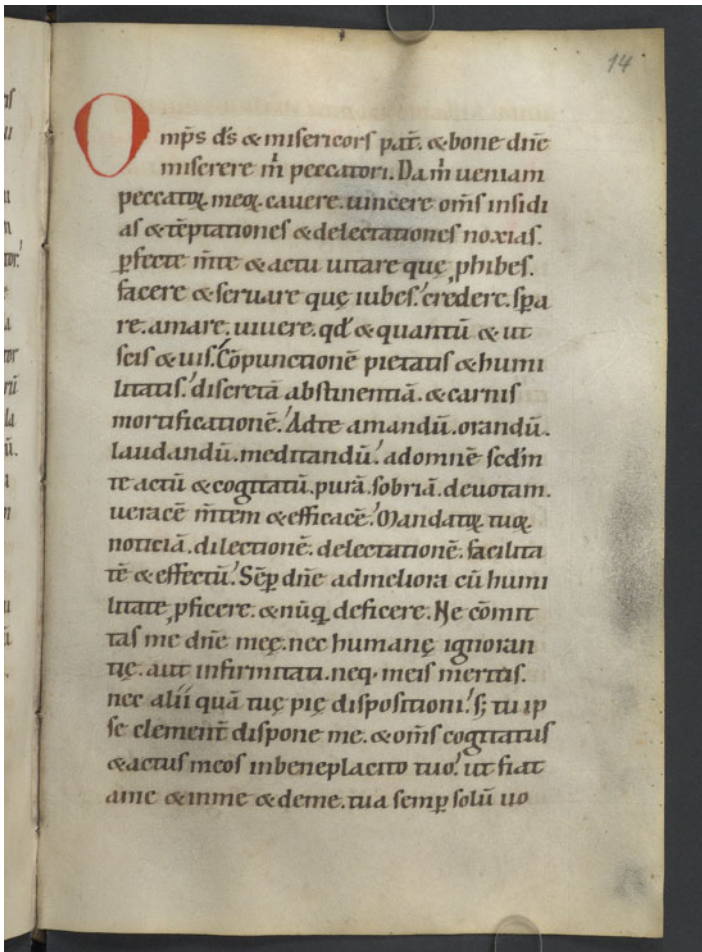 14
Omp̄s d̄s & misericors pat̄. & bone dn̄e
miserere m̄ peccatori. Da m̄ ueniam
peccatoꝝ meoꝝ. cauere. uincere om̄s insidi
as & tēptationes & delectationes noxias.
ꝑfecte m̄te & actu uitare quę ꝓhibes.
facere & seruare quę iubes. credere. sꝑa
re. amare. uiuere. qđ & quantū & ut
scis & uis. Cōpunctionē pietatis & humi
litatis. discretā abstinentiā. & carnis
mortificationē. Ad te amandū. orandū.
laudandū. meditandū. ad omnē sc̄dm
te actū & cogitatū. purā. sobriā. deuotam.
ueracē m̄tem & efficacē. Mandatoꝝ tuoꝝ
noticiā. dilectionē. delectationē. facilita
tē & effectū. Sēꝑ dn̄e ad meliora cū humi
litate ꝓficere. & nūꝗ deficere. Ne cōmit
tas me dn̄e meę. nec humanę ignoran
tię. aut infirmitati. neq; meis meritis.
nec alii quā tuę pię dispositioni. s; tu ip
se clement̄ dispone me. & om̄s cogitatus
& actus meos in beneplacito tuo. ut fiat
a me & in me & de me. tua semꝑ solū uo